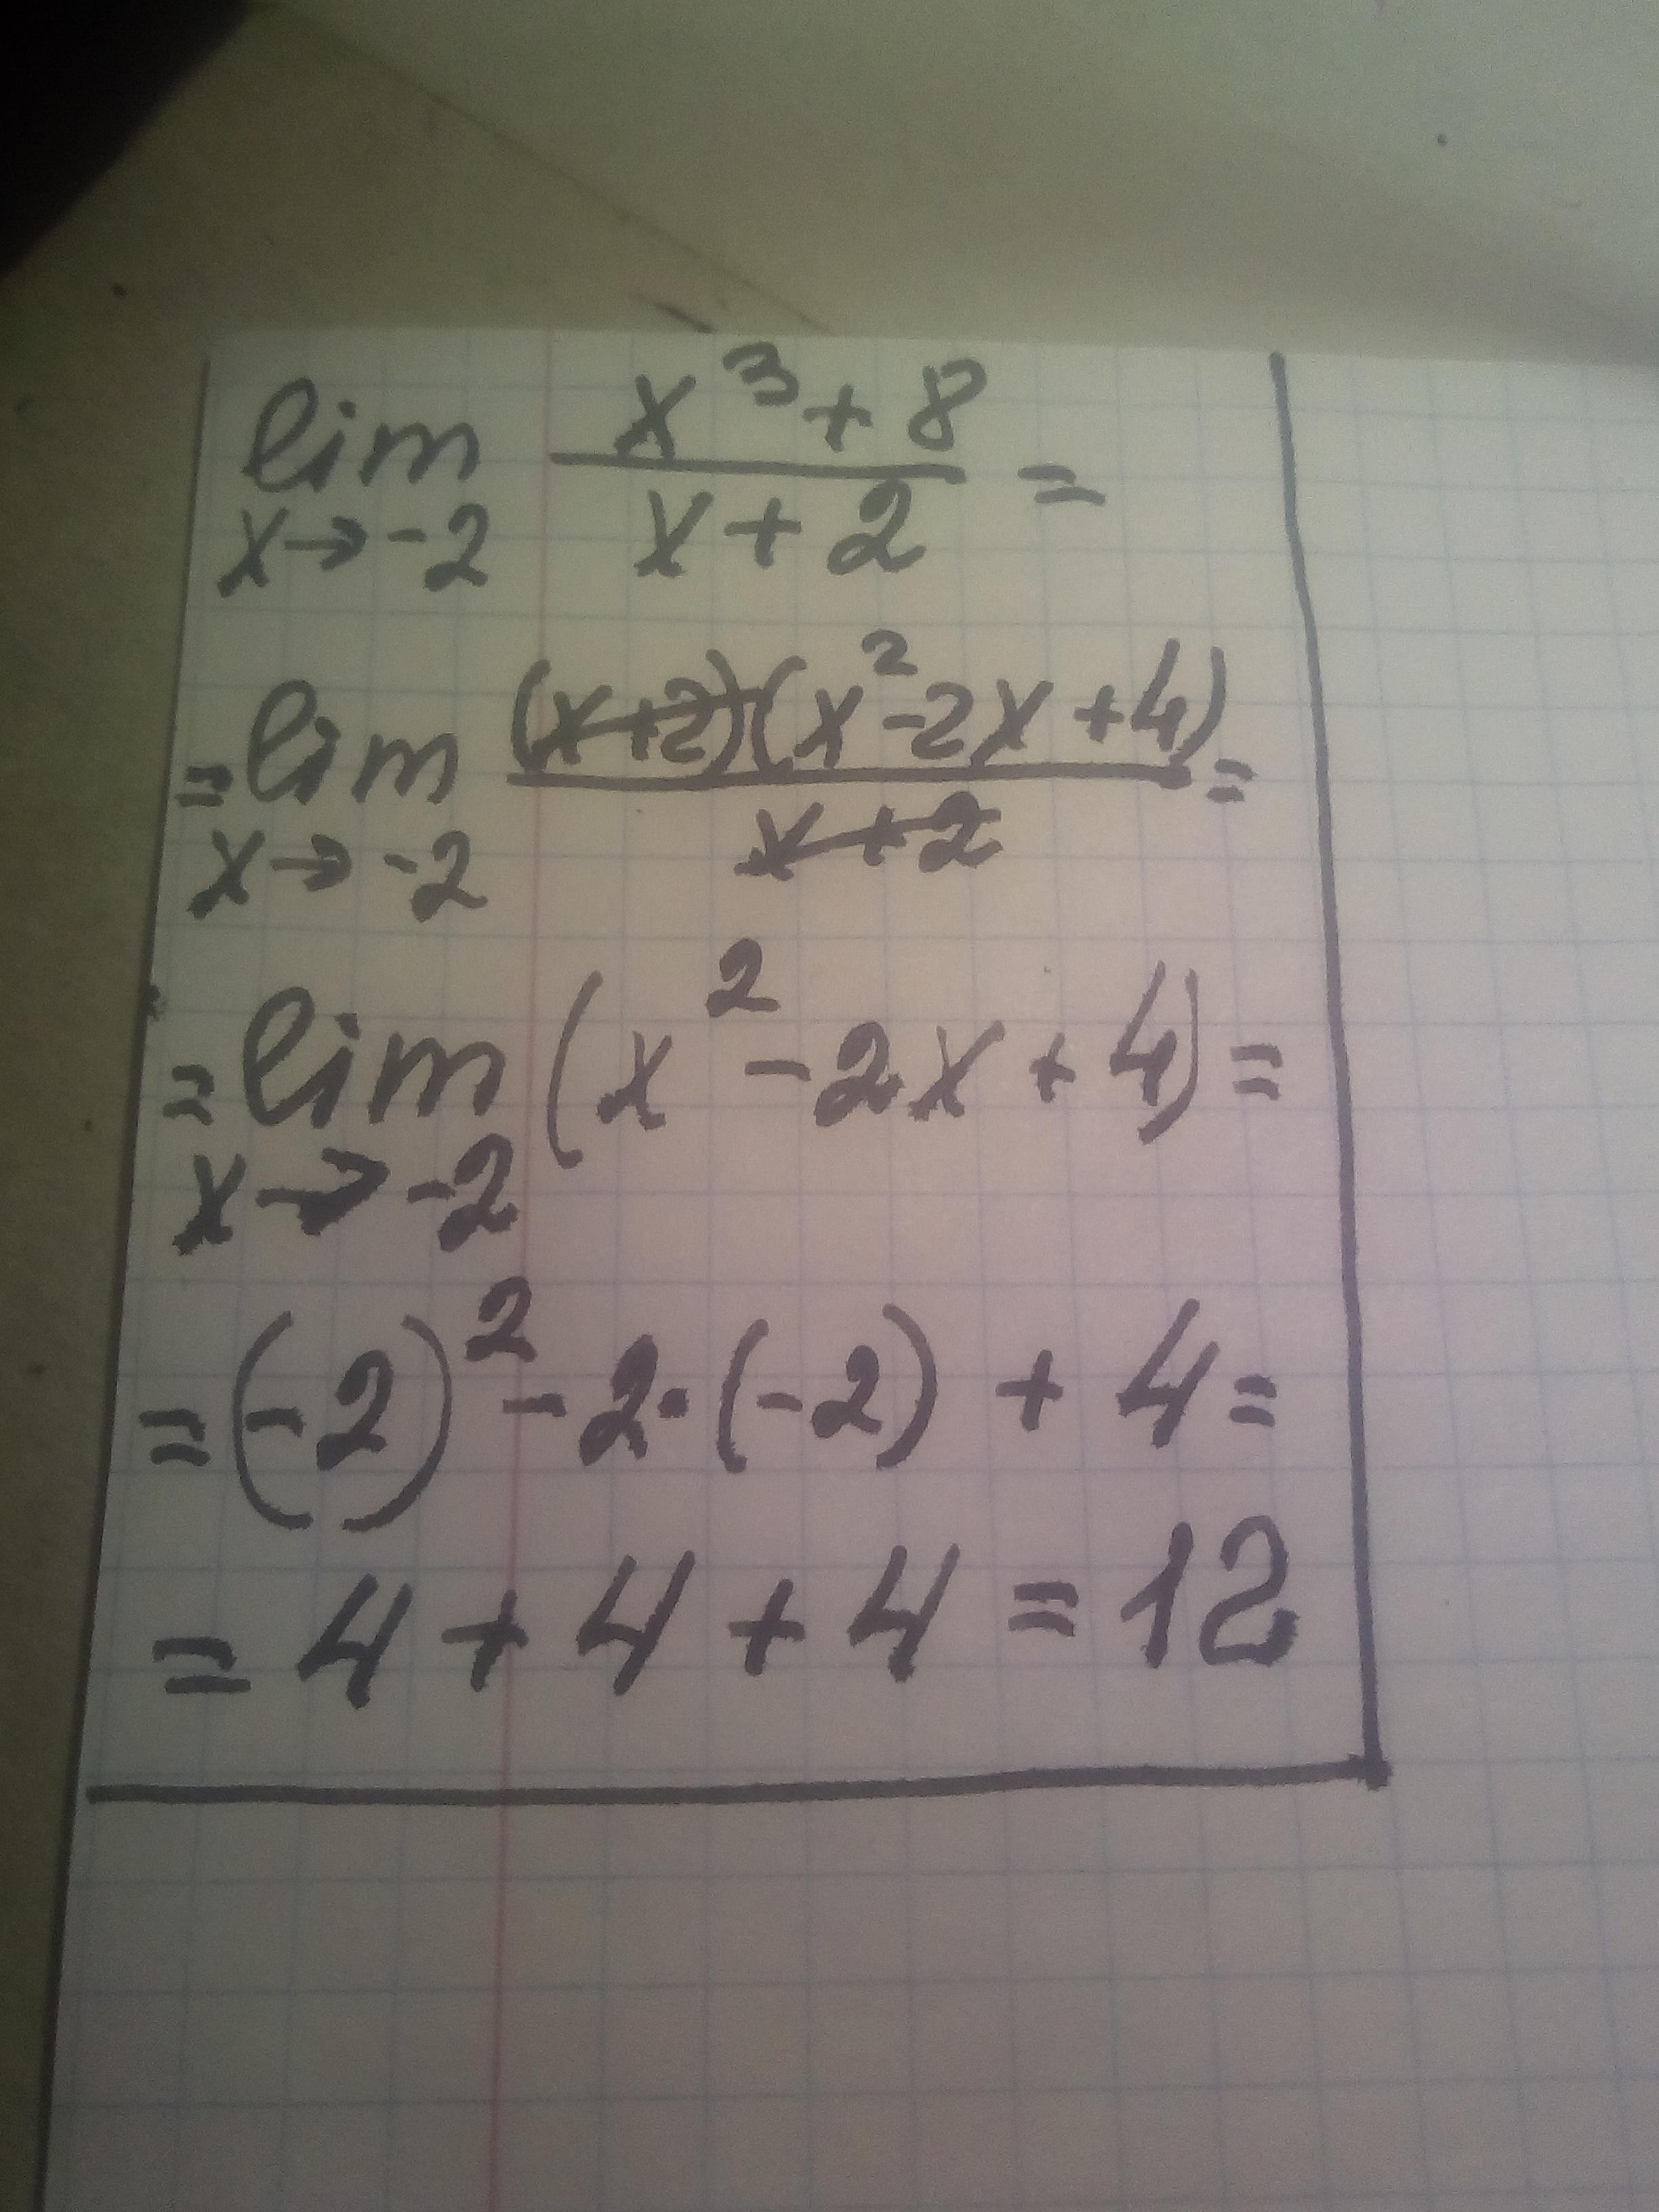 lim x→-2 (x³+8)/(x+2) =
= lim x→-2 ((x+2)(x²-2x+4))/(x+2) =
= lim x→-2 (x²-2x+4) =
= (-2)² - 2·(-2) + 4 =
= 4 + 4 + 4 = 12